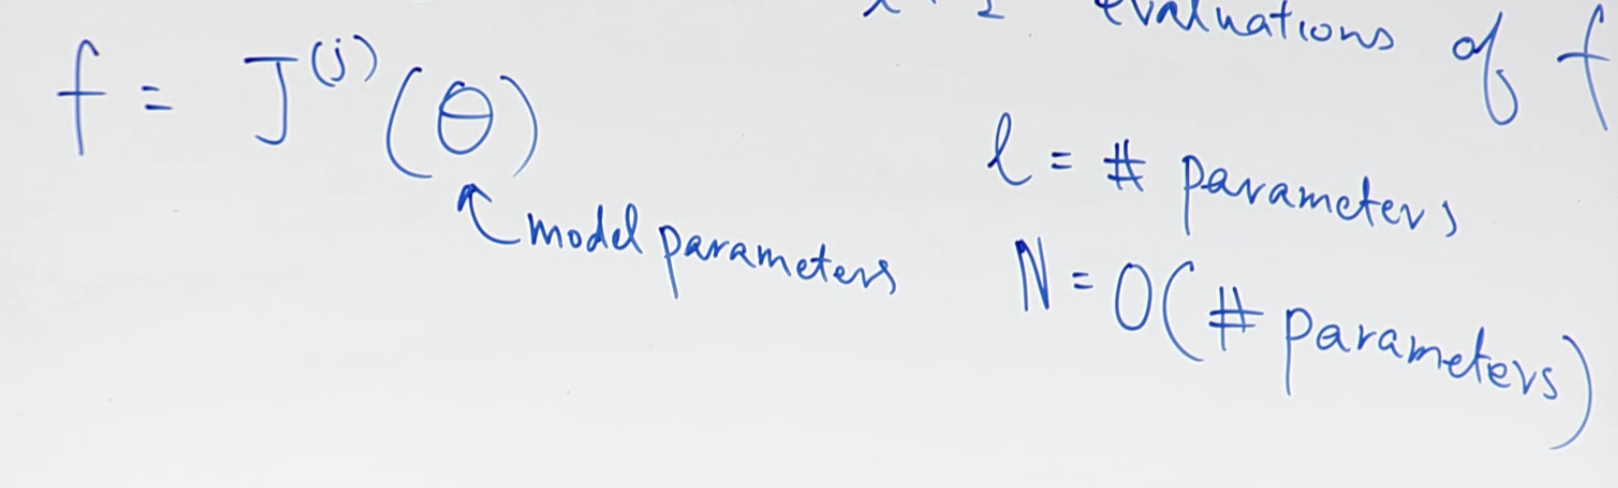 evaluations of f
f = J^(j)(θ)
ℓ = # parameters
↖ model parameters
N = O(# parameters)